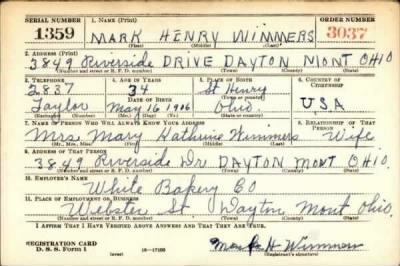 SERIAL NUMBER 1. NAME (Print) ORDER NUMBER
1359 MARK HENRY WIMMERS 3037
(First) (Middle) (Last)
2. ADDRESS (Print)
3849 Riverside DRIVE DAYTON MONT OHIO
(Number and street or R. F. D. number) (Town) (County) (State)
3. TELEPHONE 4. AGE IN YEARS 5. PLACE OF BIRTH 6. COUNTRY OF CITIZENSHIP
2837 34 St Henry
Taylor May 16 1906 Ohio. USA
7. NAME OF PERSON WHO WILL ALWAYS KNOW YOUR ADDRESS 8. RELATIONSHIP OF THAT PERSON
Mrs. Mary Katherine Wimmers Wife
(Mr., Mrs., Miss) (First) (Middle) (Last)
9. ADDRESS OF THAT PERSON
3849 Riverside Dr DAYTON MONT OHIO.
(Number and street or R. F. D. number) (Town) (County) (State)
10. EMPLOYER'S NAME
White Bakery Co
11. PLACE OF EMPLOYMENT OR BUSINESS
Webster St Dayton Mont Ohio.
(Number and street or R. F. D. number) (Town) (County) (State)
I AFFIRM THAT I HAVE VERIFIED ABOVE ANSWERS AND THAT THEY ARE TRUE.
REGISTRATION CARD
D. S. S. Form 1 (over) 16—17105 Mark H Wimmers
(Registrant's signature)